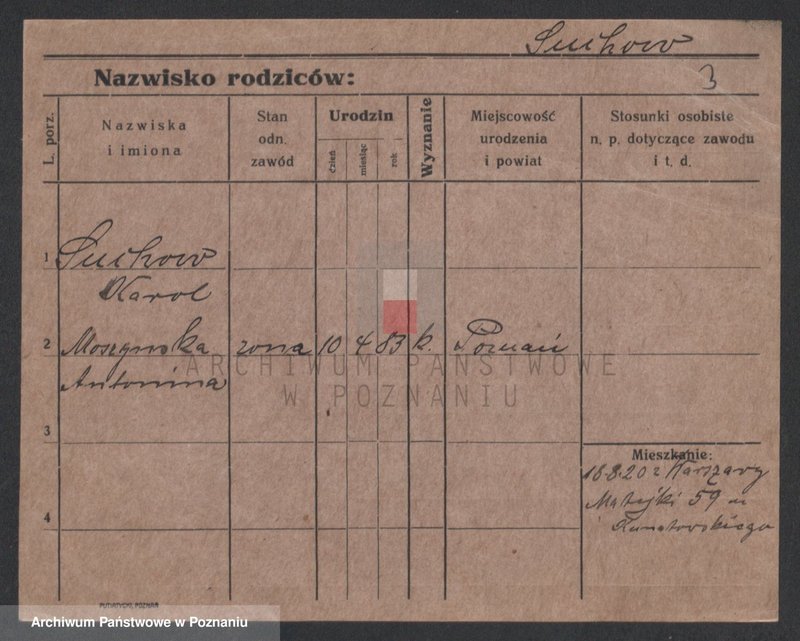 Suchow
Nazwisko rodziców:
3
L. porz.
Nazwiska
i imiona
Stan
odn.
zawód
Urodzin
dzień
miesiąc
rok
Wyznanie
Miejscowość
urodzenia
i powiat
Stosunki osobiste
n. p. dotyczące zawodu
i t. d.
1 Suchow
Karol
2 Moszynska żona 10 4 83 k. Poznań
Antonina
ARCHIWUM PAŃSTWOWE
W POZNANIU
3
Mieszkanie:
18.8.20 z Warszawy
Matejki 59 m
4
PUTIATYCKI, POZNAŃ
Archiwum Państwowe w Poznaniu